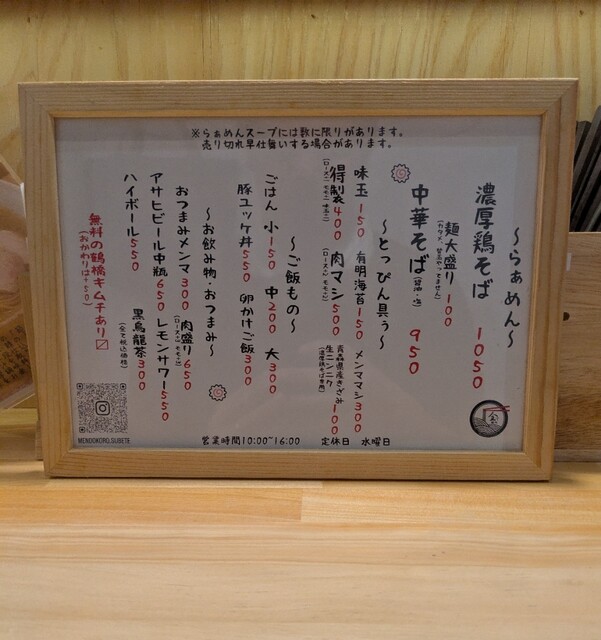 ※らぁめんスープには数に限りがあります。
売り切れ早仕舞いする場合があります。
～らぁめん～
濃厚鶏そば 1050
麺大盛り 100
中華そば(醤油・塩) 950
～とっぴん具ぅ～
味玉 150 有明海苔 150 メンママシ 300
得製 400 肉マシ 500
青森県産きざみ
生ニンニク 100
～ご飯もの～
ごはん 小 150 中 200 大 300
豚ユッケ丼 550 卵かけご飯 300
～お飲み物・おつまみ～
おつまみメンマ 300 肉盛り 650
アサヒビール中瓶 650 レモンサワー 550
ハイボール 550 黒烏龍茶 300
(全て税込価格)
無料の鶴橋キムチあり〼
(おかわりは+50)
MENDOKORO.SUBETE
営業時間10:00~16:00 定休日 水曜日